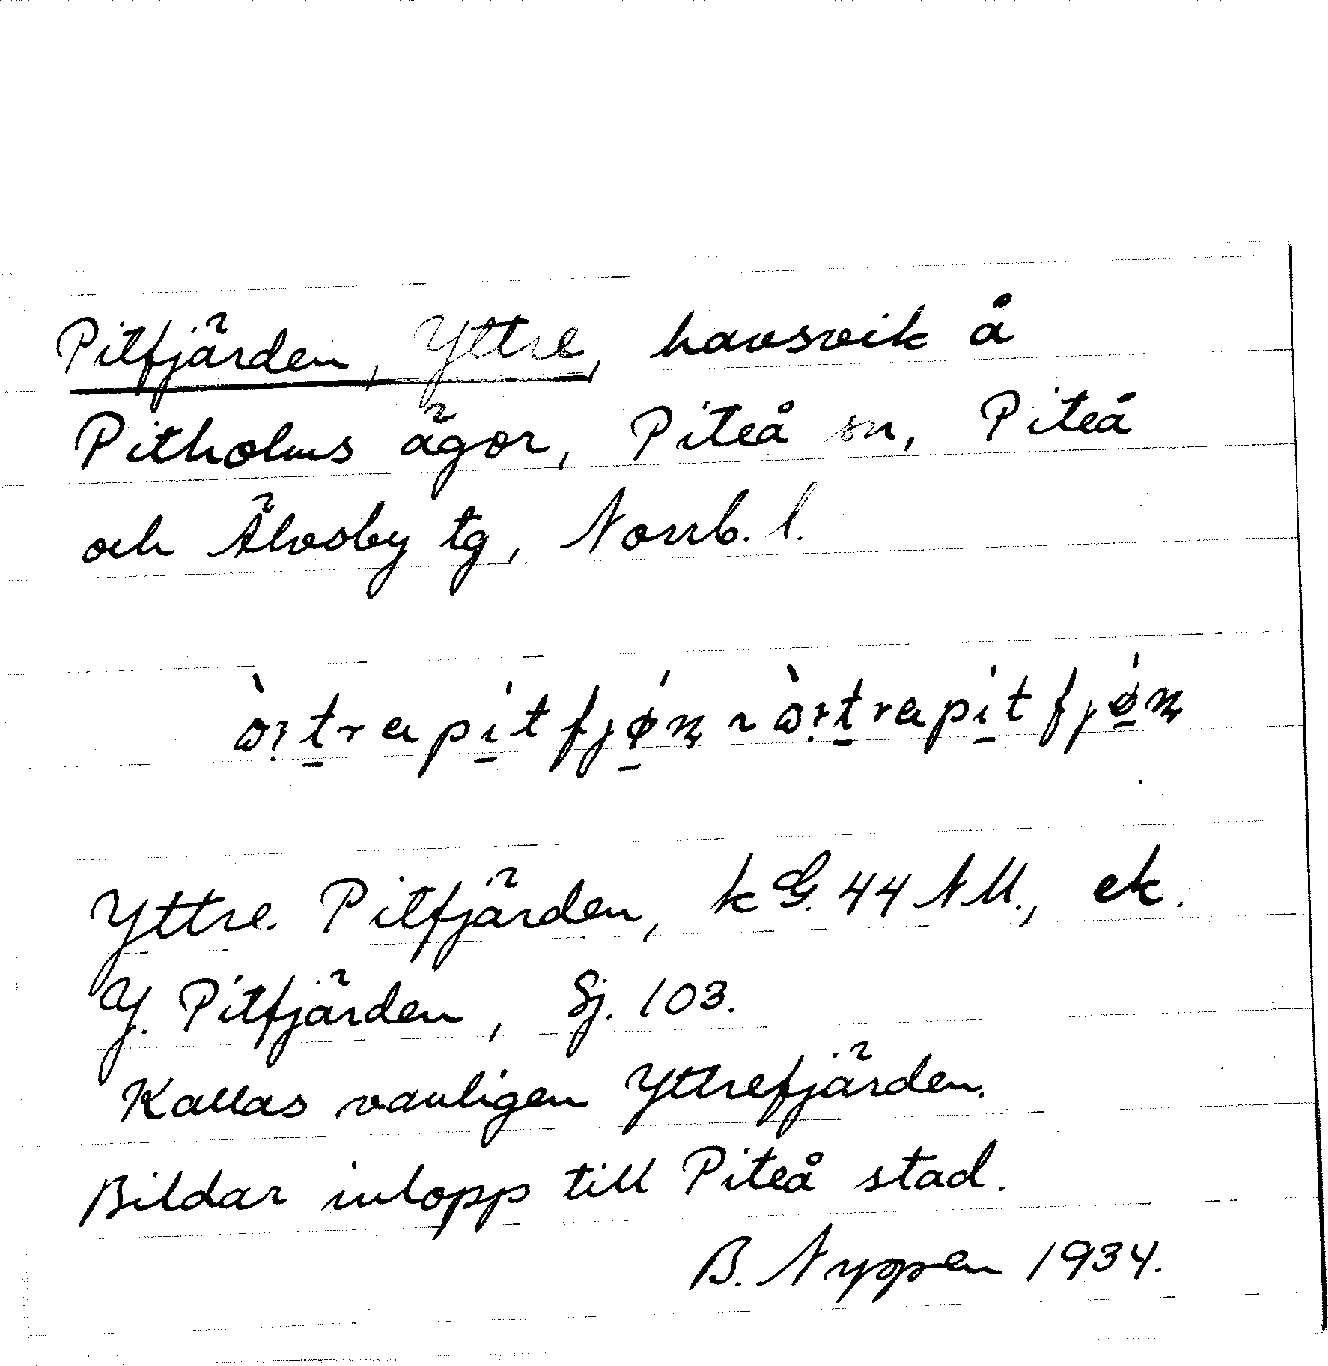 Pitfjärden, Yttre, havsvik å
Pitholms ägor, Piteå sn, Piteå
och Älvsby tg, Norrb. l.
Yttre Pitfjärden, kG. 44 NM., ek.
Y. Pitfjärden, Sj. 103.
Kallas vanligen Yttrefjärden.
Bildar inlopp till Piteå stad.
B. Nyppen 1934.